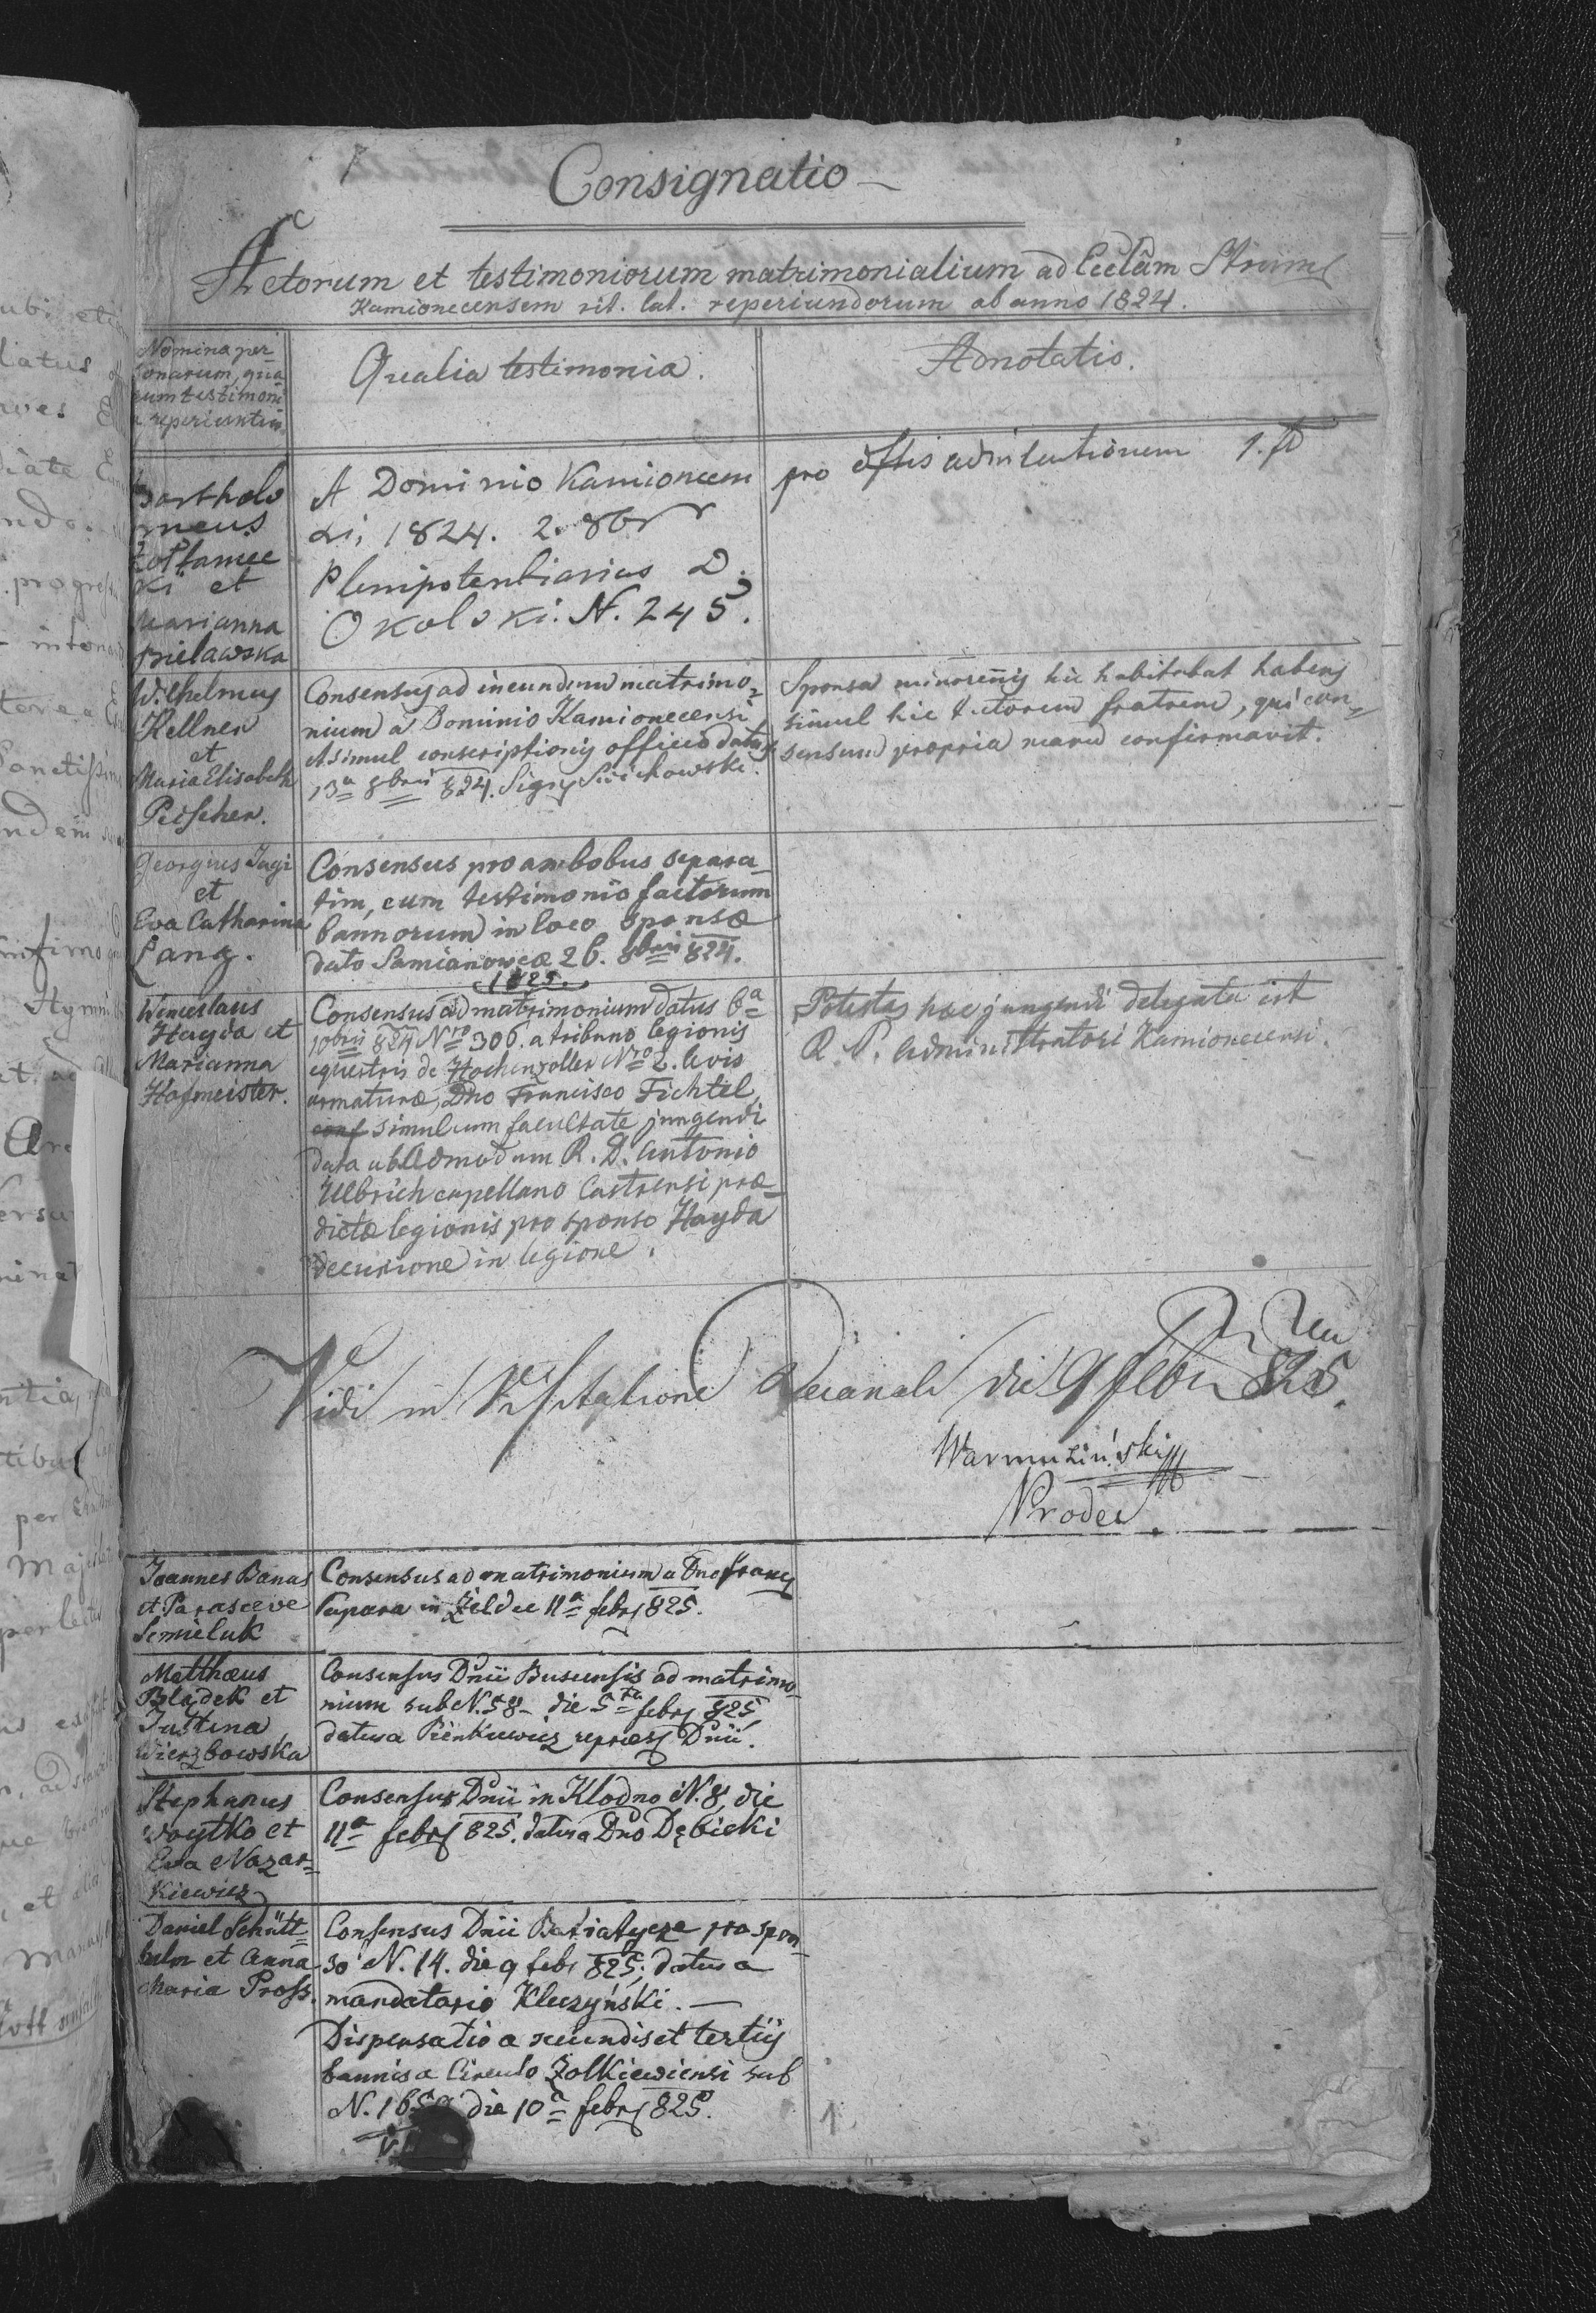 Consignatio
Actorum et testimoniorum matrimonialium ad Ecclâm Strumi
Kamionecensem rit. lat. reperiundorum ab anno 1824.
Nomina per
sonarum, qua
rum testimoni
a reperiuntur
Qualia testimonia.
Adnotatio.
Bartholo
meus
et
Marianna
Bielawska
A Dominio Kamionecen
di, 1824. 2. 8br
Plenipotentiarius D.
Okolski. N. 245.
pro 1. fl
Wilhelmus
Kellner
et
Maria Elisabeth
Peischer.
Consensus ad ineundum matrimo=
nium a Dominio Kamionecensi
et simul conscriptionis officio datus
13a 8bris 824.
Sponsa minorenis hic habitabat habens
simul hic tutorem fratrem, qui con=
sensum propria manu confirmavit.
Georgius Jagi
et
Eva Catharina
Lang.
Consensus pro ambobus separa-
tim, cum testimonio factorum
bannorum in loco sponsæ
dato Samianowcæ 26. 8bris 824.
1825.
Wenceslaus
Hayda et
Marianna
Hofmeister.
Consensus ad matrimonium datus 6a
10bris 824 Nro 306. a tribuno legionis
equestris de Hochenzoller Nro 2. levis
armaturæ, Dno Francisco Fichtel,
conf simul cum facultate jungendi
data ab Admodum R. D. Antonio
Ulbrich capellano Castrensi præ-
dictæ legionis pro sponso Hayda
decurione in legione.
Potestas hæc jungendi delegata est
R. P. Administratori Kamionecensi.
Vidi in Visitatione Decanali die 9 febr 825.
Warmuziński
Prodec
Joannes Banas
et Parasceve
Semieluk
Consensus ad matrimonium a Dno Franc
in Żeldec 11a febr 825.
Matthæus
Blądek et
Justina
Wierzbowska
Consensus Dnii Buscensis ad matrimo-
nium sub N. 58 - die 5ta febr 825,
datus a Pienkiewicz repræs Dnii.
Stephanus
Woytko et
Eva Nazar=
kiewicz
Consensus Dnii in Klodno N. 8, die
11a febr 825. datus a Dno Dębicki
Daniel Schütt=
helm et Anna
Maria Pross.
Consensus Dnii Batiatycze pro spon-
so N. 14. die 9 febr 825, datus a
mandatario Kluczyński. —
Dispensatio a secundis et tertiis
bannis a Circulo Zolkiewiensi sub
die 10a febr 825.